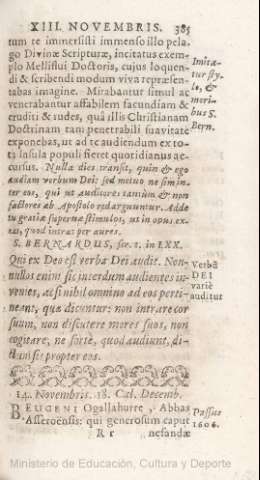 XIII. NOVEMBRIS. 385
tum te immersisti immenso illo pela-
go Divinæ Scripturæ, incitatus exem-
plo Melliflui Doctoris, cujus loquen-
di & scribendi modum viva repræsen-
tabas imagine. Mirabantur simul ac
venerabantur affabilem facundiam &
eruditi & rudes, quâ illis Christianam
Doctrinam tam penetrabili suavitate
exponebas, ut ad te audiendum ex to-
ta Insula populi fieret quotidianus ac-
cursus. Nulla dies transit, quin & ego
audiam verbum Dei: sed metuo ne sim in-
ter eos, qui ut auditores tantùm & non
factores ab Apostolo redarguuntur. Adde
tu gratiæ supernæ stimulos, ut in opus ex-
eat, quod intrat per aures.
S. BERNARDUS, ser. 1. in LXX.
Qui ex Deo est verba Dei audit. Non-
nullos enim sic interdum audientes in-
venies, ac si nihil omnino ad eos perti-
neant, quæ dicuntur: non intrare cor
suum, non discutere mores suos, non
cogitare, ne fortè, quod audiunt, di-
ctum sit propter eos.
14. Novembris. 18. Cal. Decemb.
BEUGENI Ogallahurre, Abbas
Asseroensis: qui generosum caput
R r nefandæ
Imita-
tur sty-
lo, &
mori-
bus S.
Bern.
Verba
DEI
variè
auditur
Passus
1606.
Ministerio de Educación, Cultura y Deporte